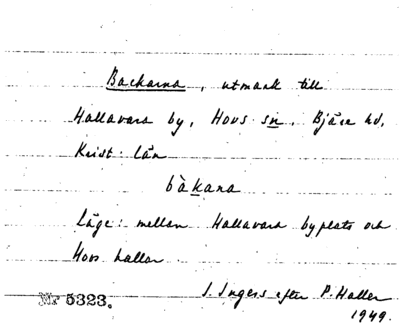 Backarna, utmark till
Hallavara by, Hovs sn, Bjäre hd,
Krist. län
bàkana
Läge: mellan Hallavara byplats och
Hovs hallar
Nr 5323.
I. Ingers efter P. Haller
1949.